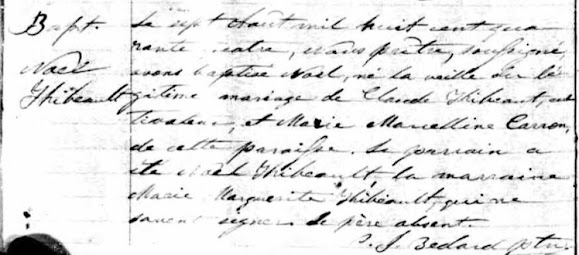 Bapt.
Noël
Thibeault
Le sept Août mil huit cent qua
rante quatre, nous prêtre, soussigné
avons baptisé Noël, né la veille du lé
gitime mariage de Claude Thibeault, cul
tivateur, et Marie Marcelline Carron,
de cette paroisse. Le parrain a
été Noël Thibeault la marraine
Marie Marguerite Thibéault, qui ne
savent signer. Le père absent.
Bedard ptre.